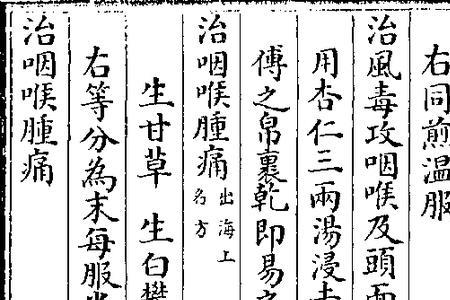 右同煎温服
治風毒攻咽喉及頭面
用杏仁三兩湯浸去
傅之帛裹乾即易之
治咽喉腫痛 出海上名方
生甘草 生白礬
右等分為末每服半
治咽喉腫痛